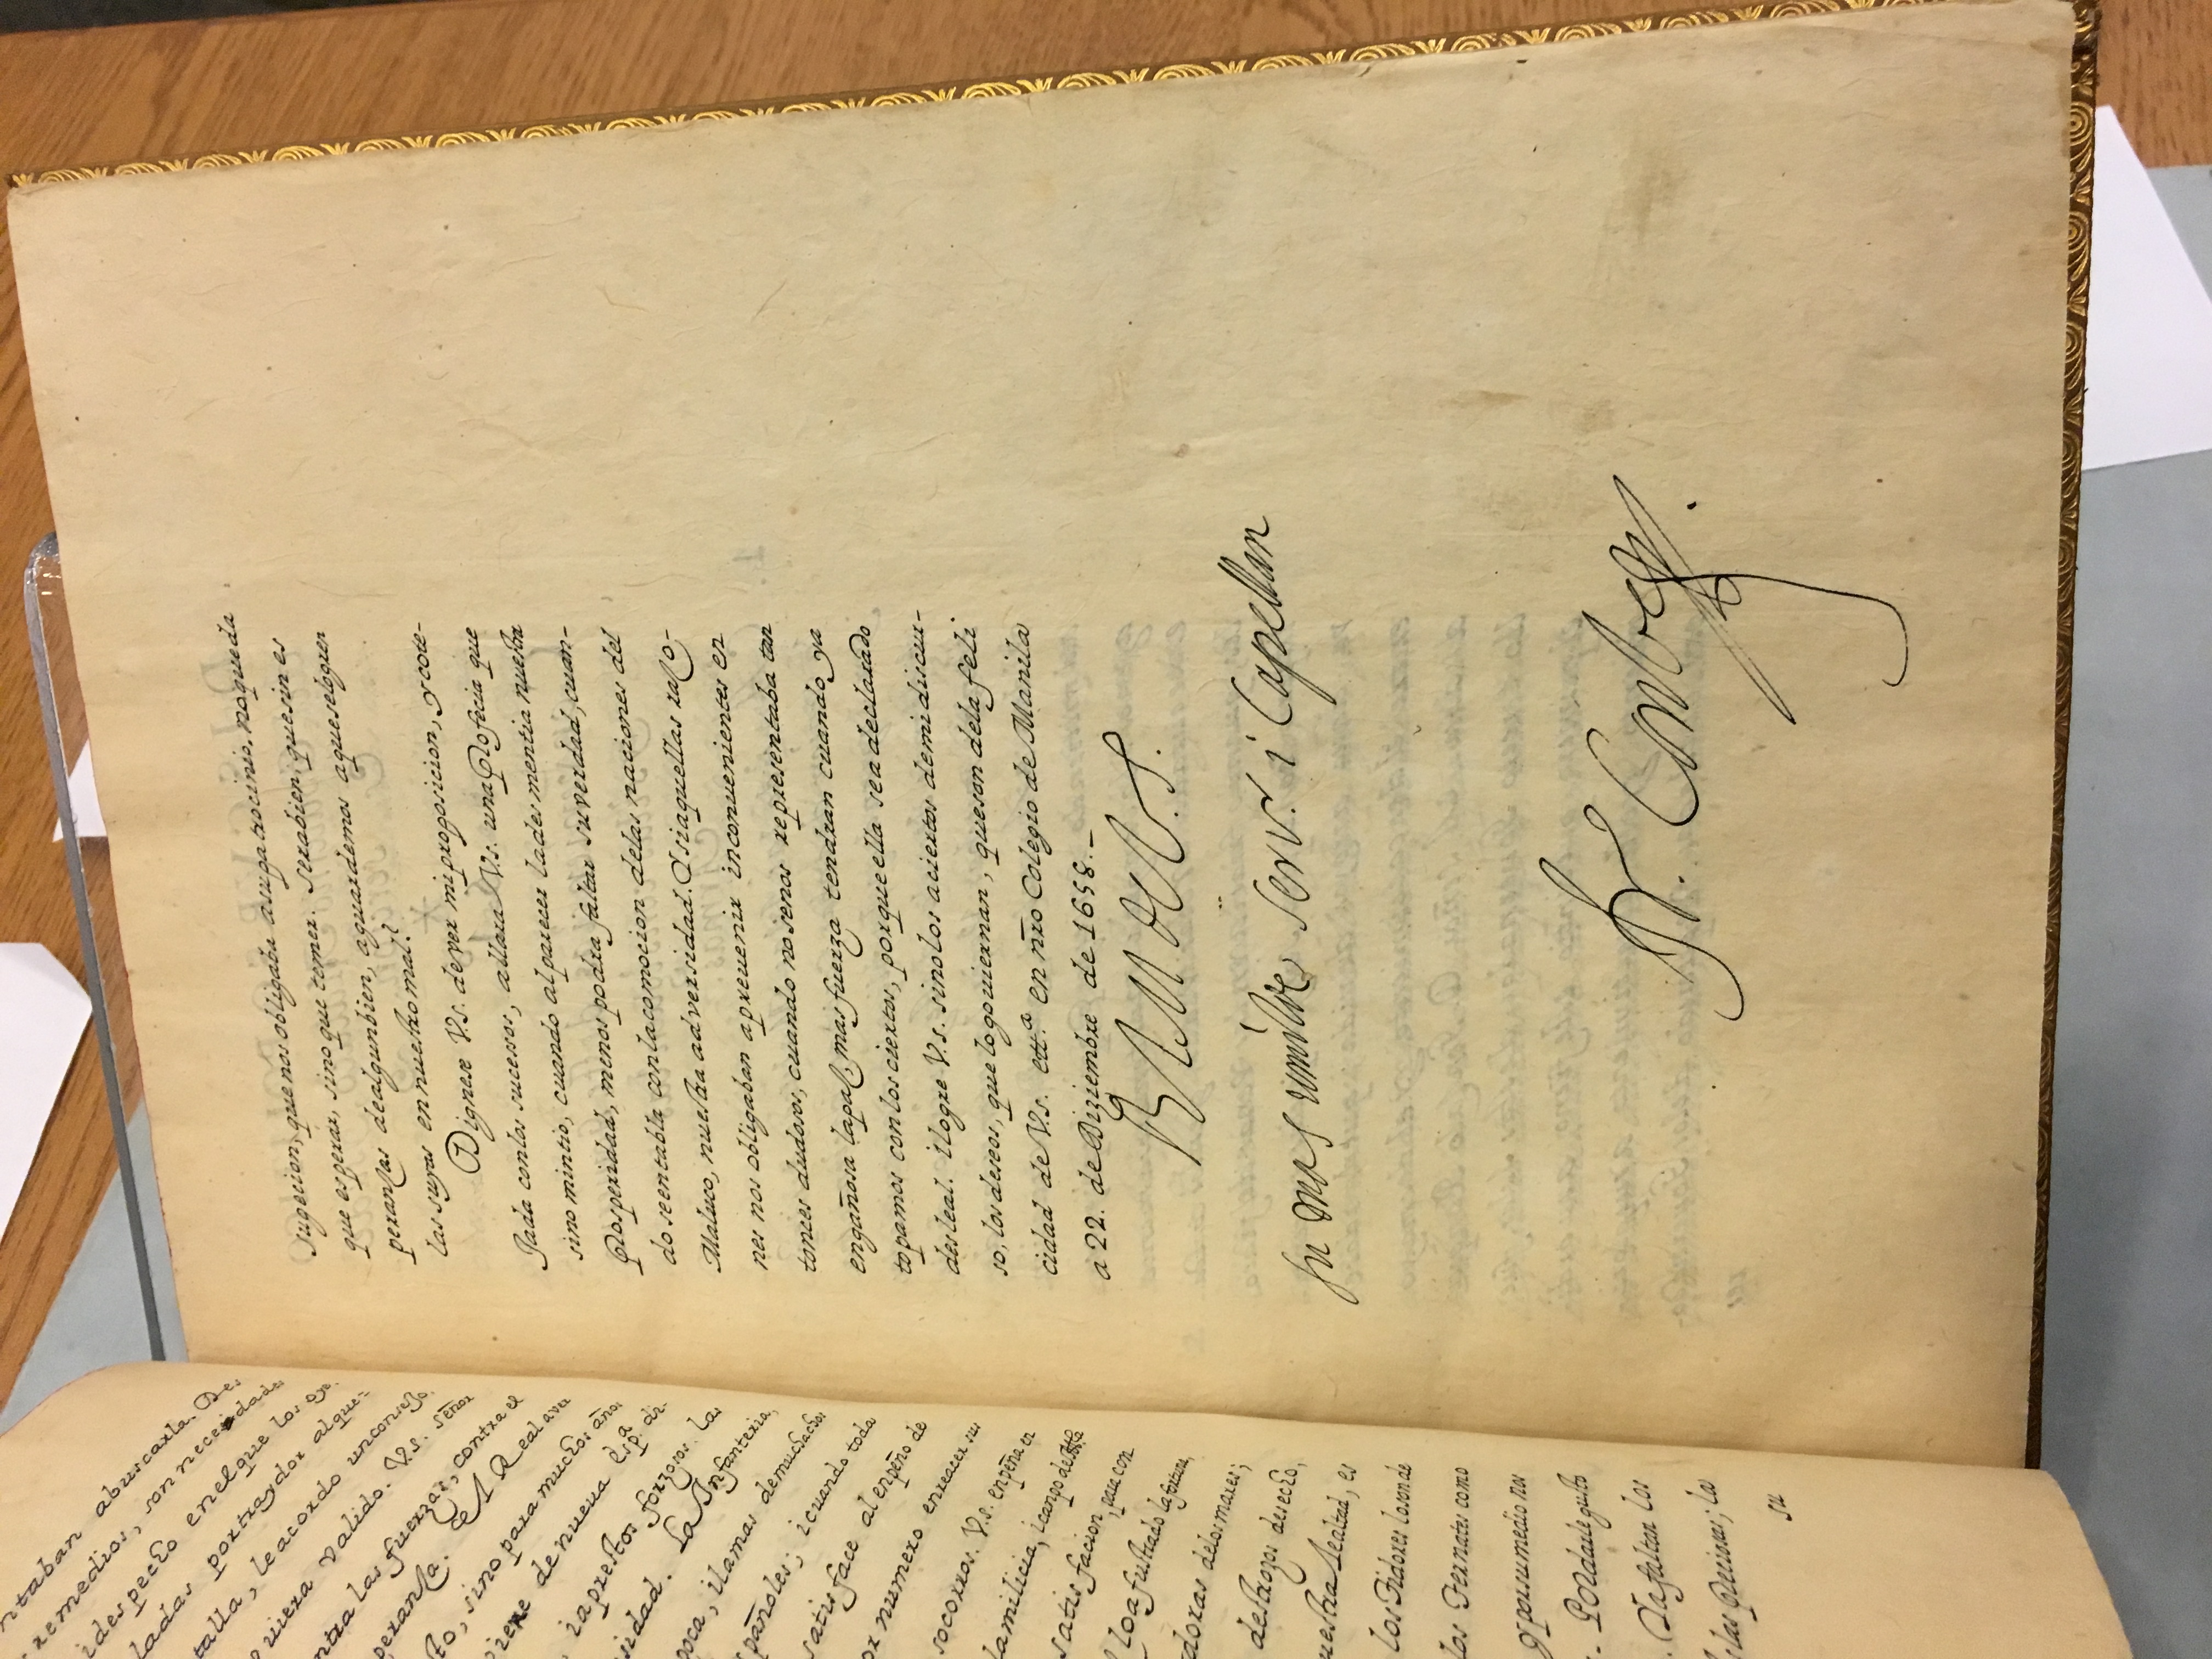 ntaban abuscarla. Des
remedios, son necesidades
idespecho enelque los oye.
ladas portraydor alque-
talla, leacordo unconsejo.
uiera valido. V.s. señor
ntra las fuerzas, contra el
peranza. el Real aver
sto, sino para muchos años
viene denueva espª di-
, iaprestos forzosos. las
sidad. La Infanteria,
poca, ilamas demuchachos
spañoles; icuando toda
satisface al enpeño de
or numero enreacer sus
socorros. V.s. enpeña en
lamilicia, icanpo de
satisfacion, para con
loa fustrado la fortuna,
doras delosmares;
destrozos desecho,
uestra lealtad, es
los Tidores loson de
los Ternates como
y porsumedio nos
. Pordarle gusto
. Ya faltan los
las preciosas; la
su
sugecion, que nos obligaba asupatrocinio. noqueda
que esperar, sino que temer. serabien, quesin es
peranzas dealgunbien, aguardemos aqueselogren
las suyas en nuestro mal?
Dignese V.s. dever miproposicion, y cote-
Jada conlos sucessos, allara V.s. una Profecia que
sino mintio, cuando alparecer lades mentia nuestra
Prosperidad, menos podra faltar suverdad, cuan-
do seentabla conlacomocion delas naciones del
Maluco, nuestra adversidad. Y siaquellas razo-
nes nos obligaban apreuenir inconuenientes en
tonces dudosos, cuando nosenos representaba tan
engañosa lapaz, mas fuerza tendran cuando ya
topamos con los ciertos, porqueella sea declarado
desleal. ilogre V.s. sinolos aciertos demi discur-
so, los deseos, que logouiernan, queson dela feli
cidad de V.s. ettª. en nr̃o Colegio de Manila
a 22. de Diziembre de 1658.-
BLM de V.S.
su mas umilde serv.r i Capellan
Fr.co Combes.